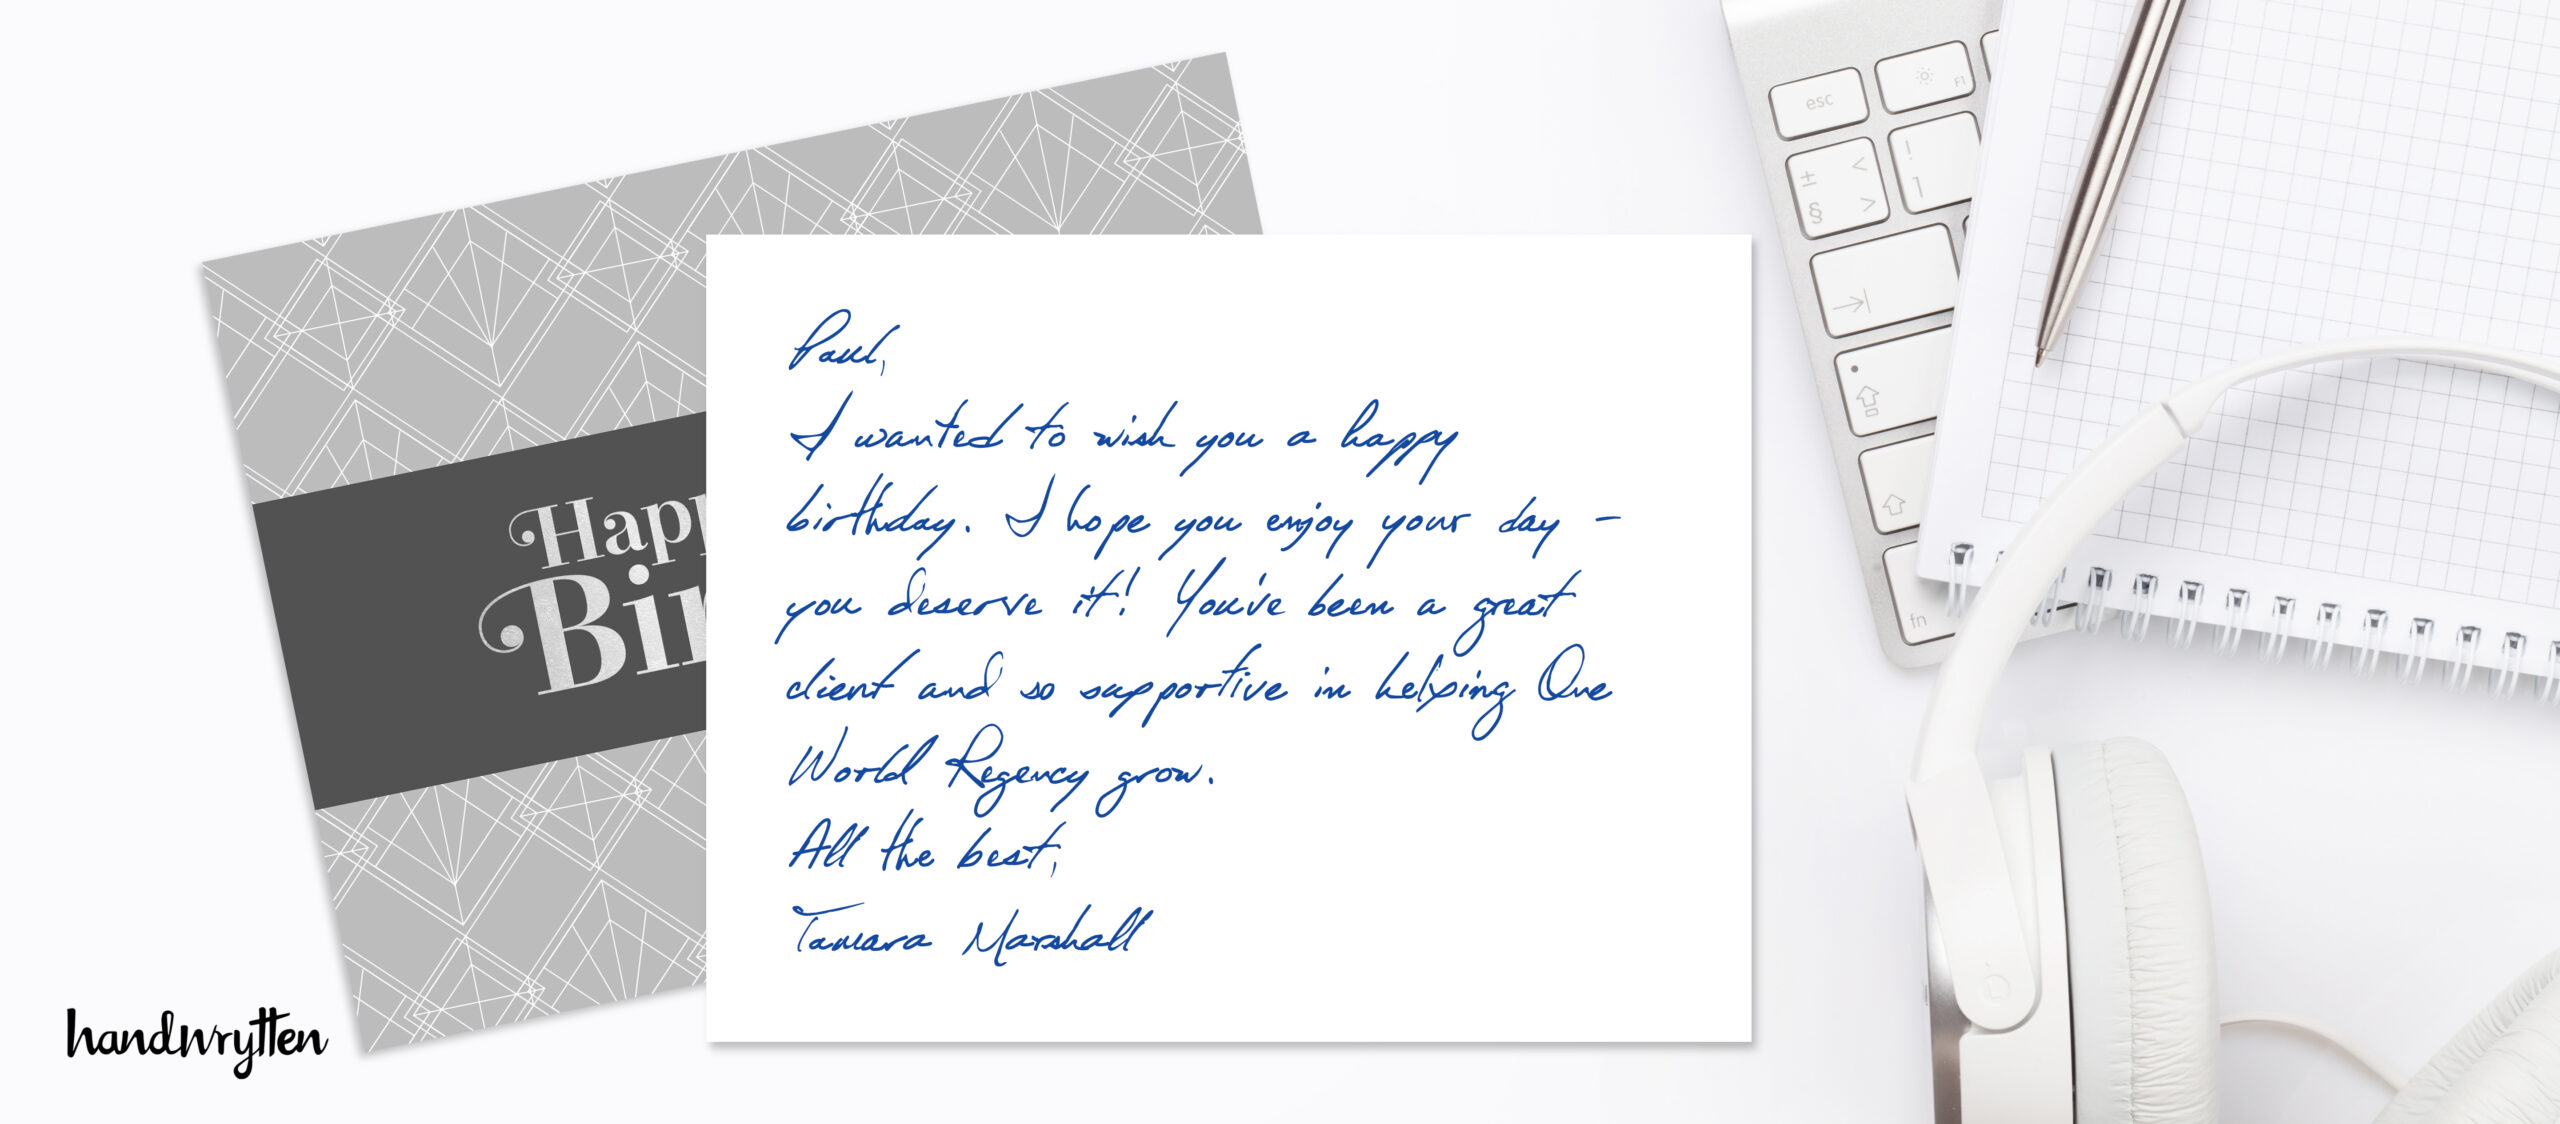 Happ
Bir
Paul,
I wanted to wish you a happy
birthday. I hope you enjoy your day -
you deserve it! You've been a great
client and so supportive in helping One
World Regency grow.
All the best,
Tamara Marshall
handwrytten
esc
F1
± <
§ >
!
1
fn